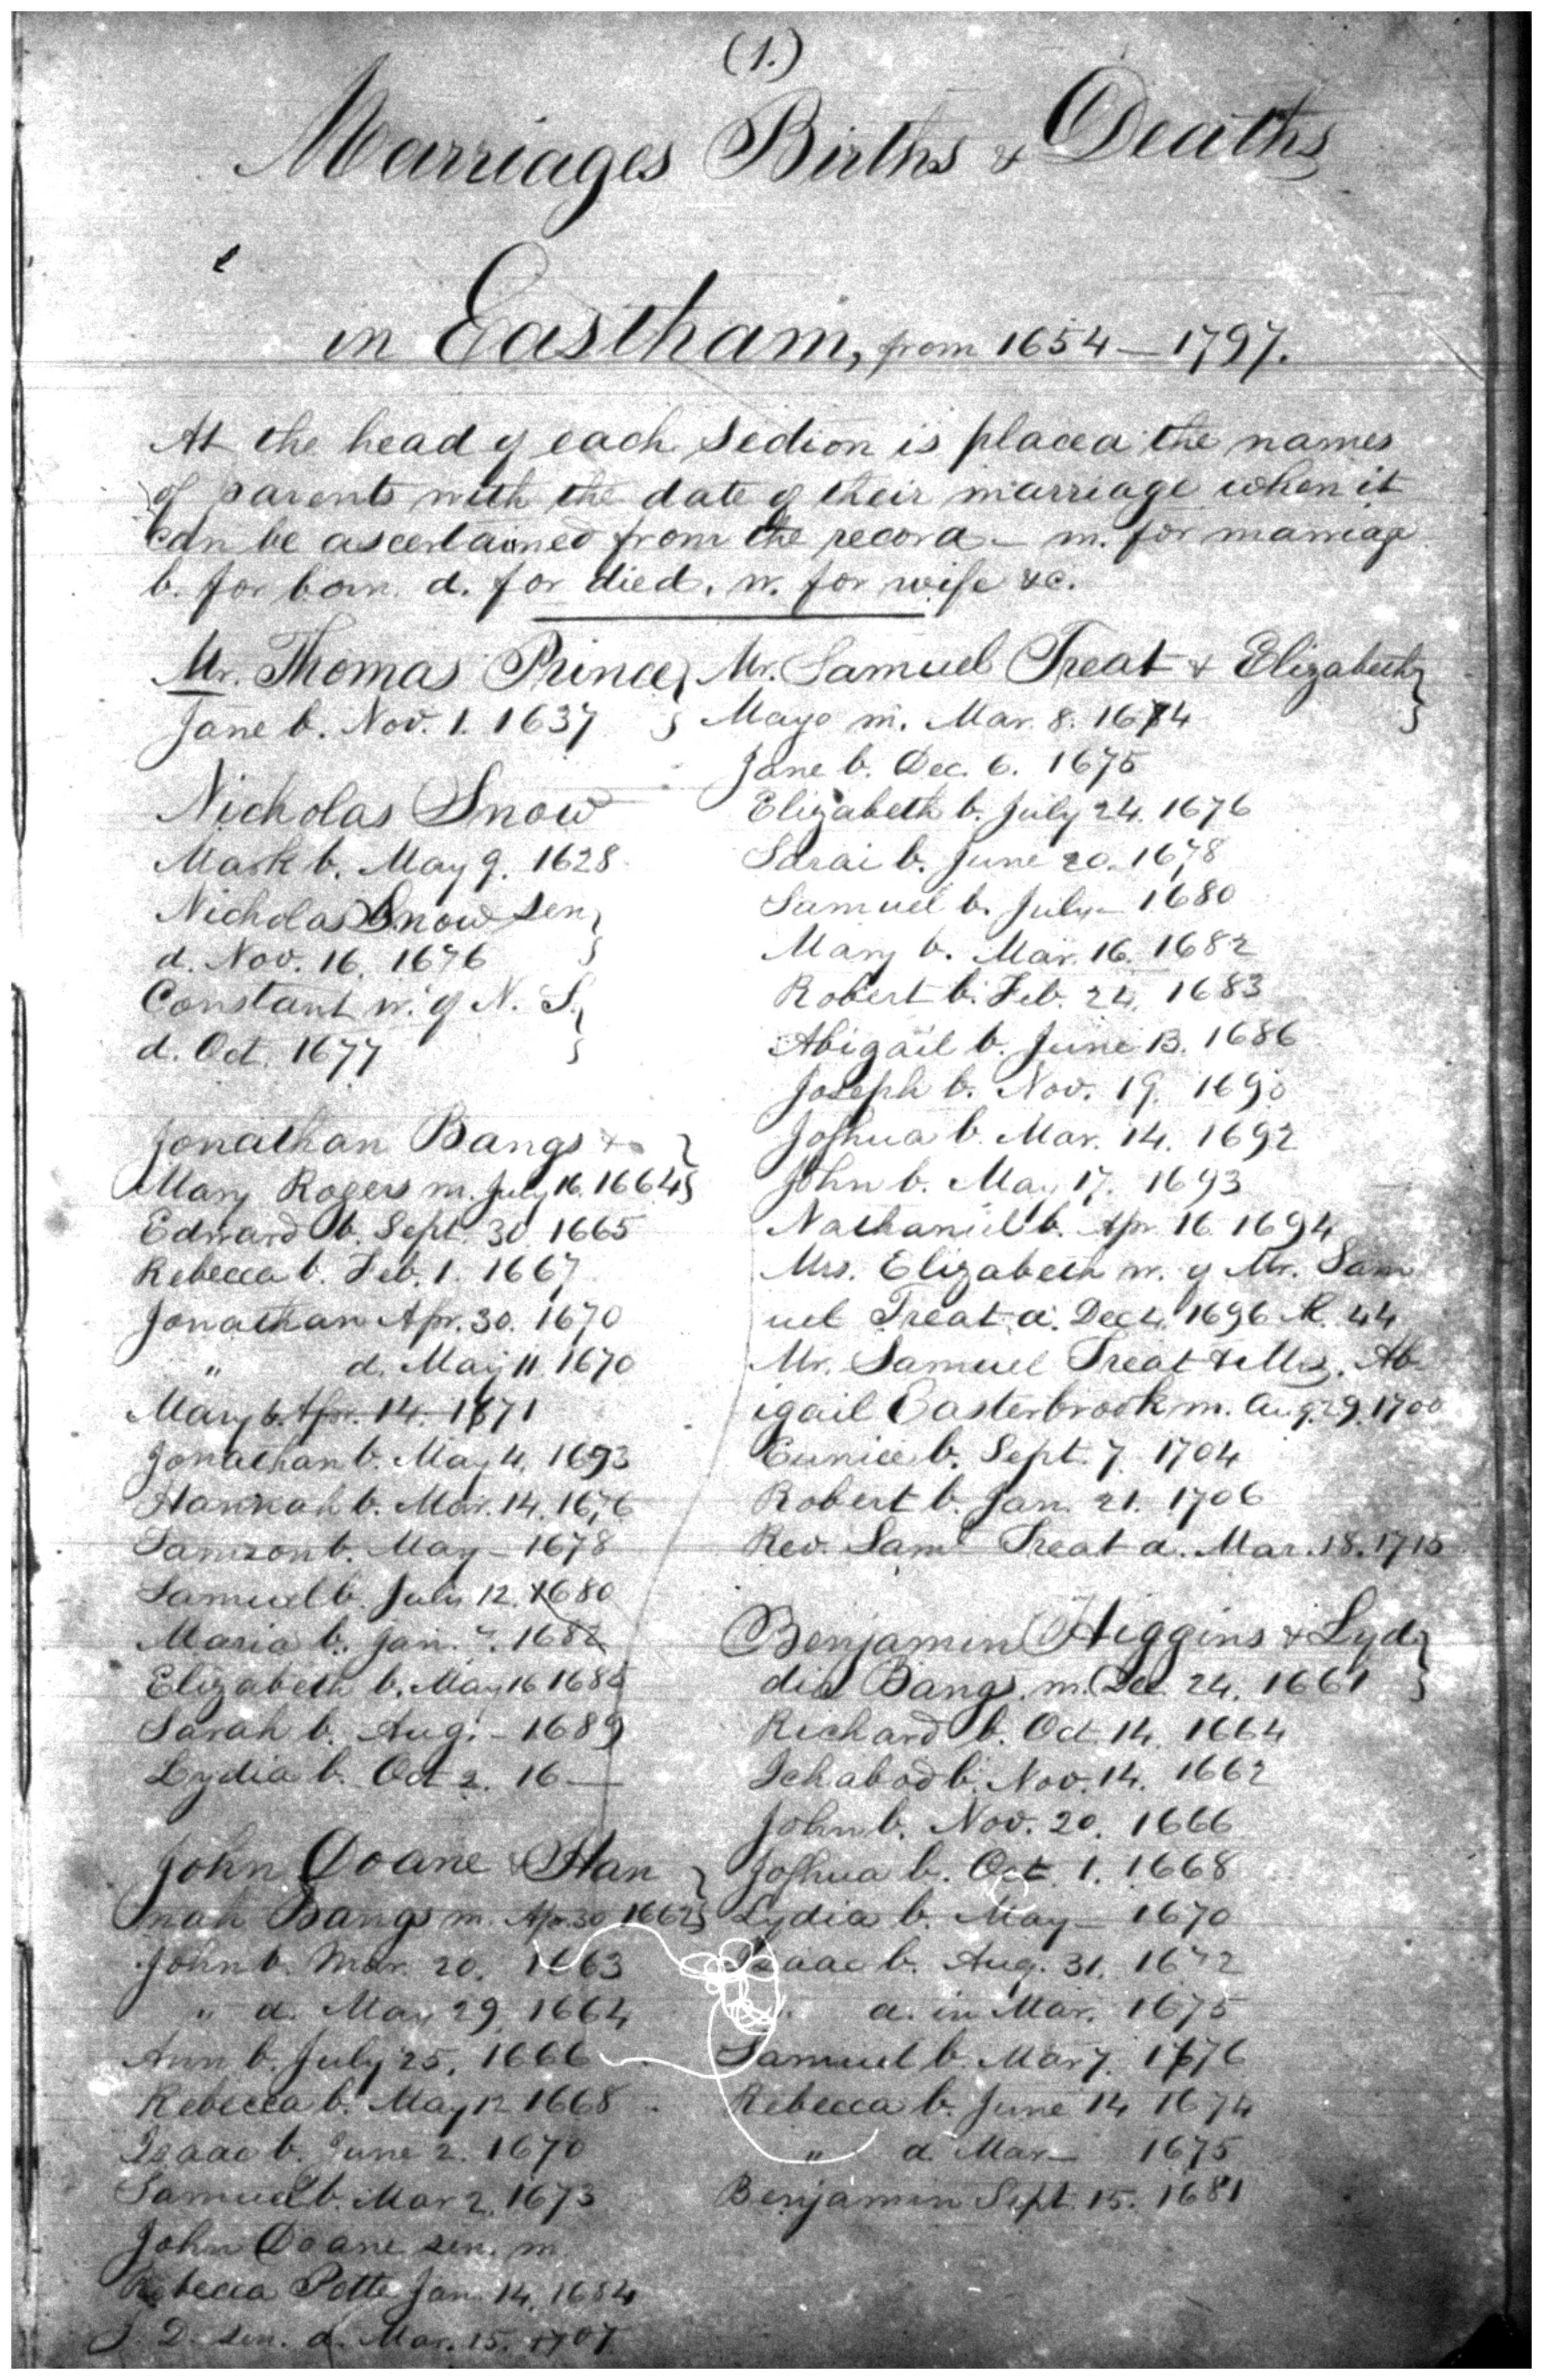 (1.)
Marriages Births & Deaths
in Eastham, from 1654 — 1797.
At the head of each section is placed the names
of parents with the date of their marriage when it
can be ascertained from the record – m. for marriage
b. for born. d. for died. w. for wife &c.
Mr. Thomas Prince
Jane b. Nov. 1. 1637
Nickolas Snow
Mark b. May 9. 1628
Nicholas Snow sen
d. Nov. 16. 1676
Constant w. of N. S.
d. Oct. 1677
Jonathan Bangs &
Mary Rogers m. July 16. 1664
Edward b. Sept. 30 1665
Rebecca b. Feb. 1. 1667
Jonathan Apr. 30. 1670
" d. May 11. 1670
Mary b. Apr. 14. 1671
Jonathan b. May 4. 1673
Hannah b. Mar. 14. 1676
Samson b. May – 1678
Samuel b. July 12. 1680
Maria b. Jan. 1682
Elizabeth b. May 16 1685
Sarah b. Aug. – 1689
Lydia b. Oct 2. 16—
John Doane & Han
nah Bangs m. Apr. 30 1662
John b. Mar. 20. 1663
" d. May 29. 1664
Ann b. July 25. 1666
Rebecca b. May 12 1668
Isaac b. June 2. 1670
Samuel b. Mar 2. 1673
John Doane sen. m.
Rebecca Pette Jan. 14. 1684
J. D. sen. d. Mar. 15. 1707
Mr. Samuel Treat & Elizabeth
Mayo m. Mar. 8. 1674
Jane b. Dec. 6. 1675
Elizabeth b. July 24. 1676
Sarai b. June 20. 1678
Samuel b. July – 1680
Mary b. Mar. 16. 1682
Robert b. Feb. 24. 1683
Abigail b. June 13. 1686
Joseph b. Nov. 19. 1690
Joshua b. Mar. 14. 1692
John b. May 17. 1693
Nathaniel b. Apr. 16 1694
Mrs. Elizabeth w. of Mr. Sam
uel Treat d. Dec 4. 1696 Æ. 44
Mr. Samuel Treat & Mrs. Ab
igail Easterbrook m. Aug. 29. 1700
Eunice b. Sept. 7. 1704
Robert b. Jan. 21. 1706
Rev. Saml Treat d. Mar. 18. 1715
Benjamin Higgins & Lyd
dia Bangs. m. Dec. 24. 1661
Richard b. Oct. 14. 1664
Ichabod b. Nov. 14. 1662
John b. Nov. 20. 1666
Joshua b. Oct. 1. 1668
Lydia b. May – 1670
Isaac b. Aug. 31. 1672
d. in Mar. 1675
Samuel b. Mar 7. 1676
Rebecca b. June 14 1674
" d. Mar – 1675
Benjamin Sept. 15. 1681